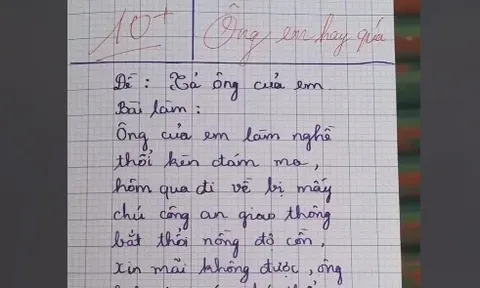 10+
Ông em hay quá
Đề : Tả ông của em
Bài làm :
Ông của em làm nghề
thổi kèn đám ma,
hôm qua đi về bị mấy
chú công an giao thông
bắt thổi nồng độ cồn,
xin mãi không được, ông